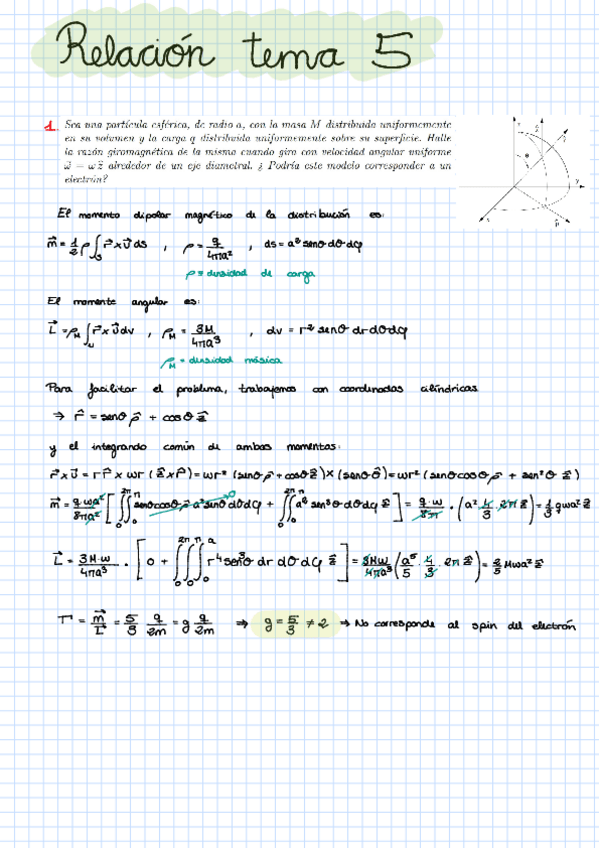 Relación tema 5
1 Sea una partícula esférica, de radio a, con la masa M distribuida uniformemente
en su volumen y la carga q distribuida uniformemente sobre su superficie. Halle
la razón giromagnética de la misma cuando gira con velocidad angular uniforme
ω⃗ = ω ẑ alrededor de un eje diametral. ¿ Podría este modelo corresponder a un
electrón?
El momento dipolar magnético de la distribución es:
m⃗ = 1/2 ρ ∫_S r⃗ x v⃗ ds , ρ = q/4πa² , ds = a² senθ dθ dφ
ρ ≡ densidad de carga
El momento angular es:
L⃗ = ρ_M ∫_v r⃗ x v⃗ dv , ρ_M = 3M/4πa³ , dv = r² senθ dr dθ dφ
ρ_M = densidad másica
Para facilitar el problema, trabajemos con coordenadas cilíndricas
⇒ r̂ = senθ ρ̂ + cosθ ẑ
y el integrando común de ambos momentos:
r⃗ x v⃗ = r r̂ x ωr (ẑ x r̂) = ωr² (senθ ρ̂ + cosθ ẑ) x (senθ θ̂) = ωr² (senθ cosθ ρ̂ + sen²θ ẑ)
m⃗ = q·ωa²/8πa² [∫₀^2π ∫₀^π senθ cosθ ρ̂ a² senθ dθ dφ → 0 + ∫₀^2π ∫₀^π a² sen³θ dθ dφ ẑ] = q·ω/8π · (a² 4/3 2π ẑ) = 1/3 qωa² ẑ
L⃗ = 3M·ω/4πa³ · [0 + ∫₀^2π ∫₀^π ∫₀^a r⁴ sen³θ dr dθ dφ ẑ] = 3Mω/4πa³ (a⁵/5 · 4/3 · 2π ẑ) = 2/5 Mωa² ẑ
Γ = m⃗/L⃗ = 5/3 q/2m = g q/2m ⇒ g = 5/3 ≠ 2 → No corresponde al spin del electrón